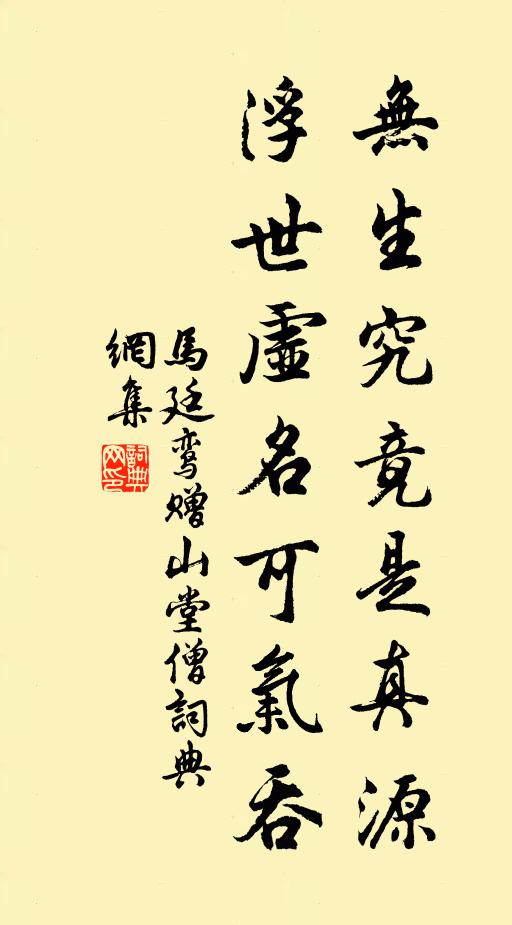 無生究竟是真源
浮世虛名可氣吞
馬廷鸞贈山堂僧詞典
網集
詞典
网印